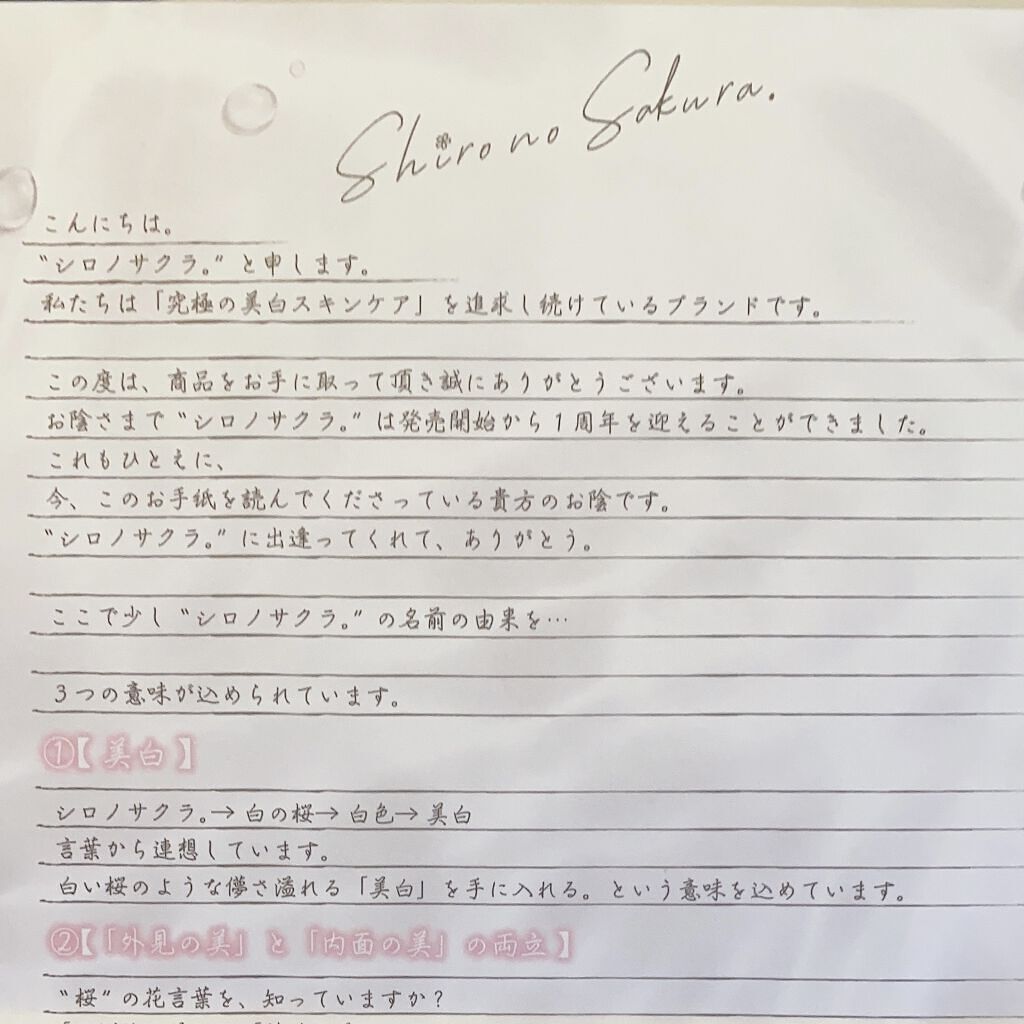 Shiro no Sakura.
こんにちは。
“シロノサクラ。”と申します。
私たちは「究極の美白スキンケア」を追求し続けているブランドです。
この度は、商品をお手に取って頂き誠にありがとうございます。
お陰さまで“シロノサクラ。”は発売開始から1周年を迎えることができました。
これもひとえに、
今、このお手紙を読んでくださっている貴方のお陰です。
“シロノサクラ。”に出逢ってくれて、ありがとう。
ここで少し“シロノサクラ。”の名前の由来を…
3つの意味が込められています。
①【美白】
シロノサクラ。→白の桜→白色→美白
言葉から連想しています。
白い桜のような儚さ溢れる「美白」を手に入れる。という意味を込めています。
②【「外見の美」と「内面の美」の両立】
“桜”の花言葉を、知っていますか?